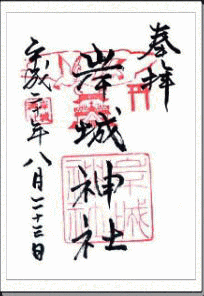 奉拝
岸城神社
平成二十年八月二十三日